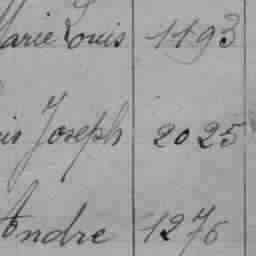 Marie Louis 1193
is Joseph 2025
Andre 1276